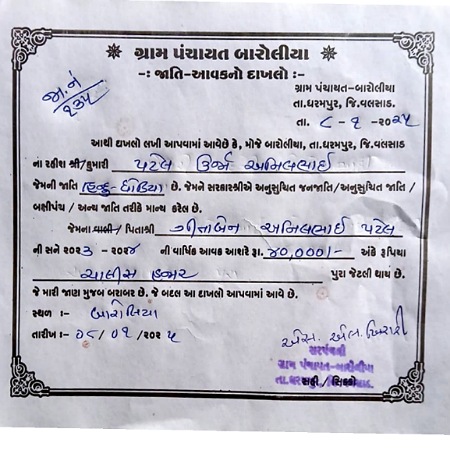 ગ્રામ પંચાયત બારોલીયા
-: જાતિ-આવકનો દાખલો :-
જા.નં ૨૩૫
ગ્રામ પંચાયત-બારોલીયા
તા.ધરમપુર, જિ.વલસાડ
તા. ૮-૧-૨૦૨૫
આથી દાખલો લખી આપવામાં આવેકે, મોજે બારોલીયા, તા.ધરમપુર, જિ.વલસાડ
ના રહીશ શ્રી/કુમારી પટેલ ઉર્જા અનિલભાઈ
જેમની જાતિ હિન્દુ-ધોડિયા છે. જેમને સરકારશ્રીએ અનુસુચિત જનજાતિ/અનુસુચિત જાતિ/
બક્ષીપંચ / અન્ય જાતિ તરીકે માન્ય કરેલ છે.
જેમના વાલી/પિતાશ્રી ગીતાબેન અનિલભાઈ પટેલ
ની સને ૨૦૨૩ - ૨૦૨૪ ની વાર્ષિક આવક આશરે રૂા. ૪૦,૦૦૦/- અંકે રૂપિયા
ચાલીસ હજાર પુરા જેટલી થાય છે.
જે મારી જાણ મુજબ બરાબર છે. જે બદલ આ દાખલો આપવામાં આવે છે.
સ્થળ :- બારોલિયા
તારીખ :- ૦૮/૦૧/૨૦૨૫
સરપંચશ્રી
ગ્રામ પંચાયત-બારોલીયા
તા.ધરમપુર, જિ.વલસાડ.
સહી / સિક્કો